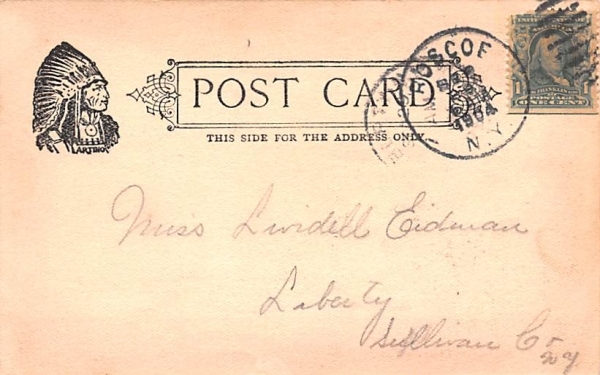 POST CARD
THIS SIDE FOR THE ADDRESS ONLY
ARTINO
ROSCOE
MAR
1904
N.Y.
1
ONE CENT
Miss Lividell Eidman
Liberty
Sullivan Co
N.Y.